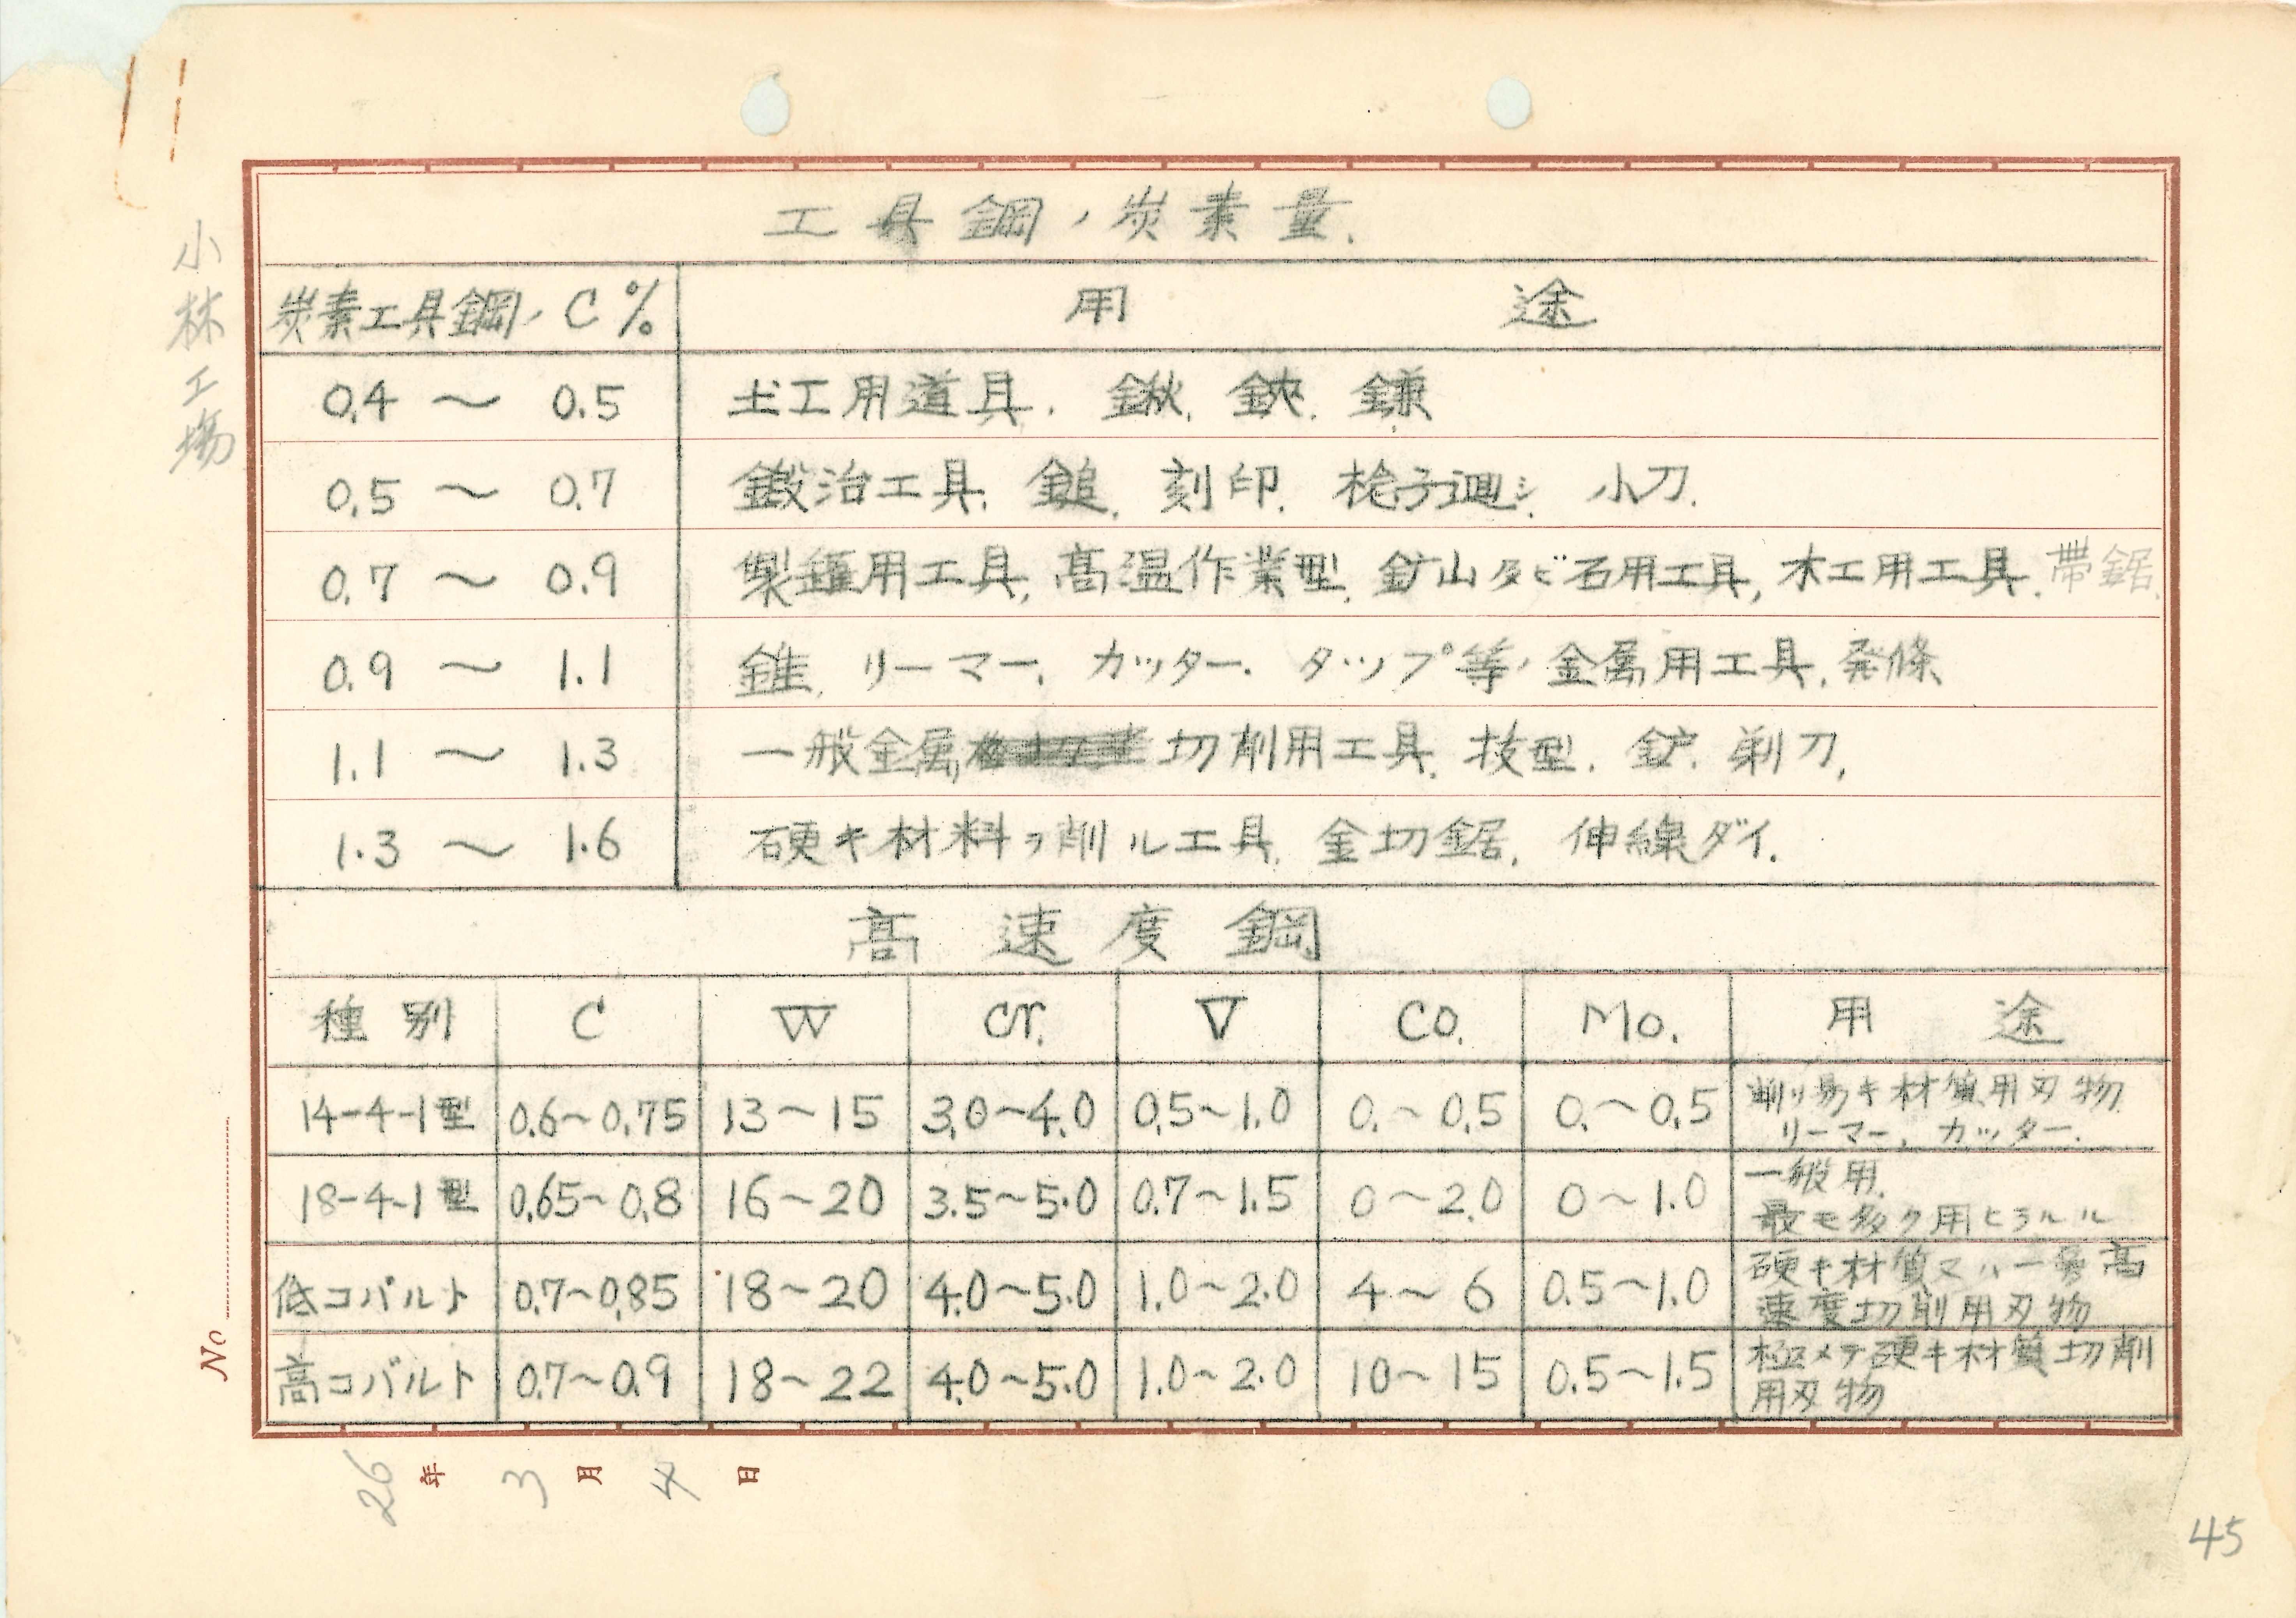 小林工場
工具鋼ノ炭素量.
炭素工具鋼ノC% 用途
0.4 ~ 0.5 土工用道具. 鍬. 鋏. 鎌
0.5 ~ 0.7 鍛治工具. 鎚. 刻印. 捻子廻シ. 小刀.
0.7 ~ 0.9 用工具, 高温作業型. 鉱山及ビ石用工具, 木工用工具. 帯鋸.
0.9 ~ 1.1 錐. リーマー. カッター. タップ等ノ金属用工具. 発條
1.1 ~ 1.3 一般金属 切削用工具. 抜型. 鑢. 剃刀.
1.3 ~ 1.6 硬キ材料ヲ削ル工具. 金切鋸. 伸線ダイ.
高速度鋼
種別 C W Cr. V Co. Mo. 用途
14-4-1型 0.6~0.75 13~15 3.0~4.0 0.5~1.0 0.~0.5 0.~0.5 削リ易キ材質用刃物.
リーマー, カッター.
18-4-1型 0.65~0.8 16~20 3.5~5.0 0.7~1.5 0~2.0 0~1.0 一般用.
最モ多ク用ヒラルル
低コバルト 0.7~0.85 18~20 4.0~5.0 1.0~2.0 4~6 0.5~1.0 硬キ材質又ハ一層高
速度切削用刃物
高コバルト 0.7~0.9 18~22 4.0~5.0 1.0~2.0 10~15 0.5~1.5 極メテ硬キ材質切削
用刃物
No
26年3月4日
45